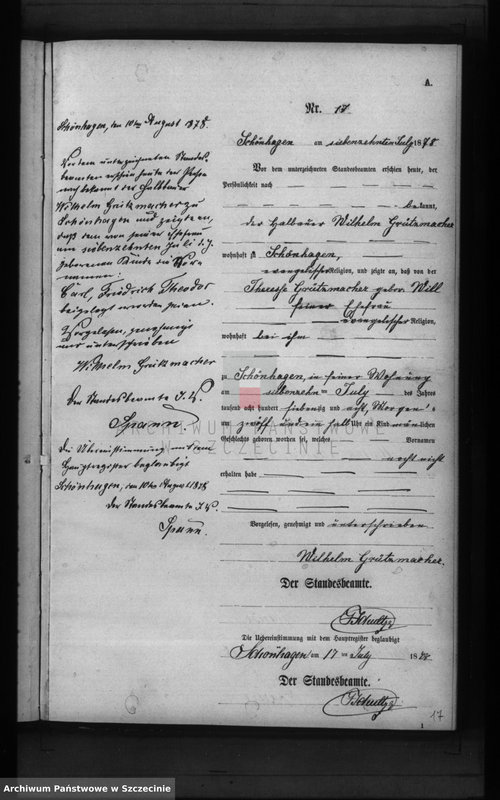 A.
Nr. 17
Schönhagen am siebenzehnten July 1878
Vor dem unterzeichneten Standesbeamten erschien heute, der
Persönlichkeit nach
bekannt,
der Halbauer Wilhelm Grützmacher
wohnhaft zu Schönhagen,
evangelischer Religion, und zeigte an, daß von der
Therese Grützmacher gebor. Will
seiner Ehefrau
evangelischer Religion,
wohnhaft bei ihm
zu Schönhagen, in seiner Wohnung
am siebenzehn ten July des Jahres
tausend acht hundert siebenzig und acht, Morgens
um zwölf und ein halb Uhr ein Kind männlichen
Geschlechts geboren worden sei, welches Vornamen
noch nicht
erhalten habe
Vorgelesen, genehmigt und unterschrieben
Wilhelm Grützmacher.
Der Standesbeamte.
Die Uebereinstimmung mit dem Hauptregister beglaubigt
Schönhagen am 17 ten July 1878
Der Standesbeamte.
17
Schönhagen, den 10ten August 1878.
Vor dem unterzeichneten Standes-
beamten erschien heute der Person
nach bekannt der Halbbauer
Wilhelm Grützmacher zu
Schönhagen und zeigte an,
daß dem von seiner Ehefrau
am siebenzehnten Juli d. J.
geborenen Kinde die Vor-
namen:
Carl, Friedrich Theodor
beigelegt worden seien.
Vorgelesen, genehmigt
und unterschrieben
Wilhelm Grützmacher
Der Standesbeamte
Spann.
Die Übereinstimmung mit dem
Hauptregister beglaubigt
Schönhagen, den 10ten August 1878
Der Standesbeamte
Spann.
ARCHIWUM PAŃSTWOWE
W SZCZECINIE
Archiwum Państwowe w Szczecinie